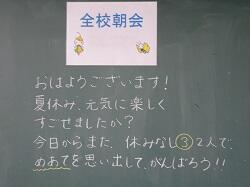 全校朝会
おはようございます!
夏休み、元気に楽しく
すごせましたか?
今日からまた、休みなし③2人で、
めあてを思い出して、がんばろう!!